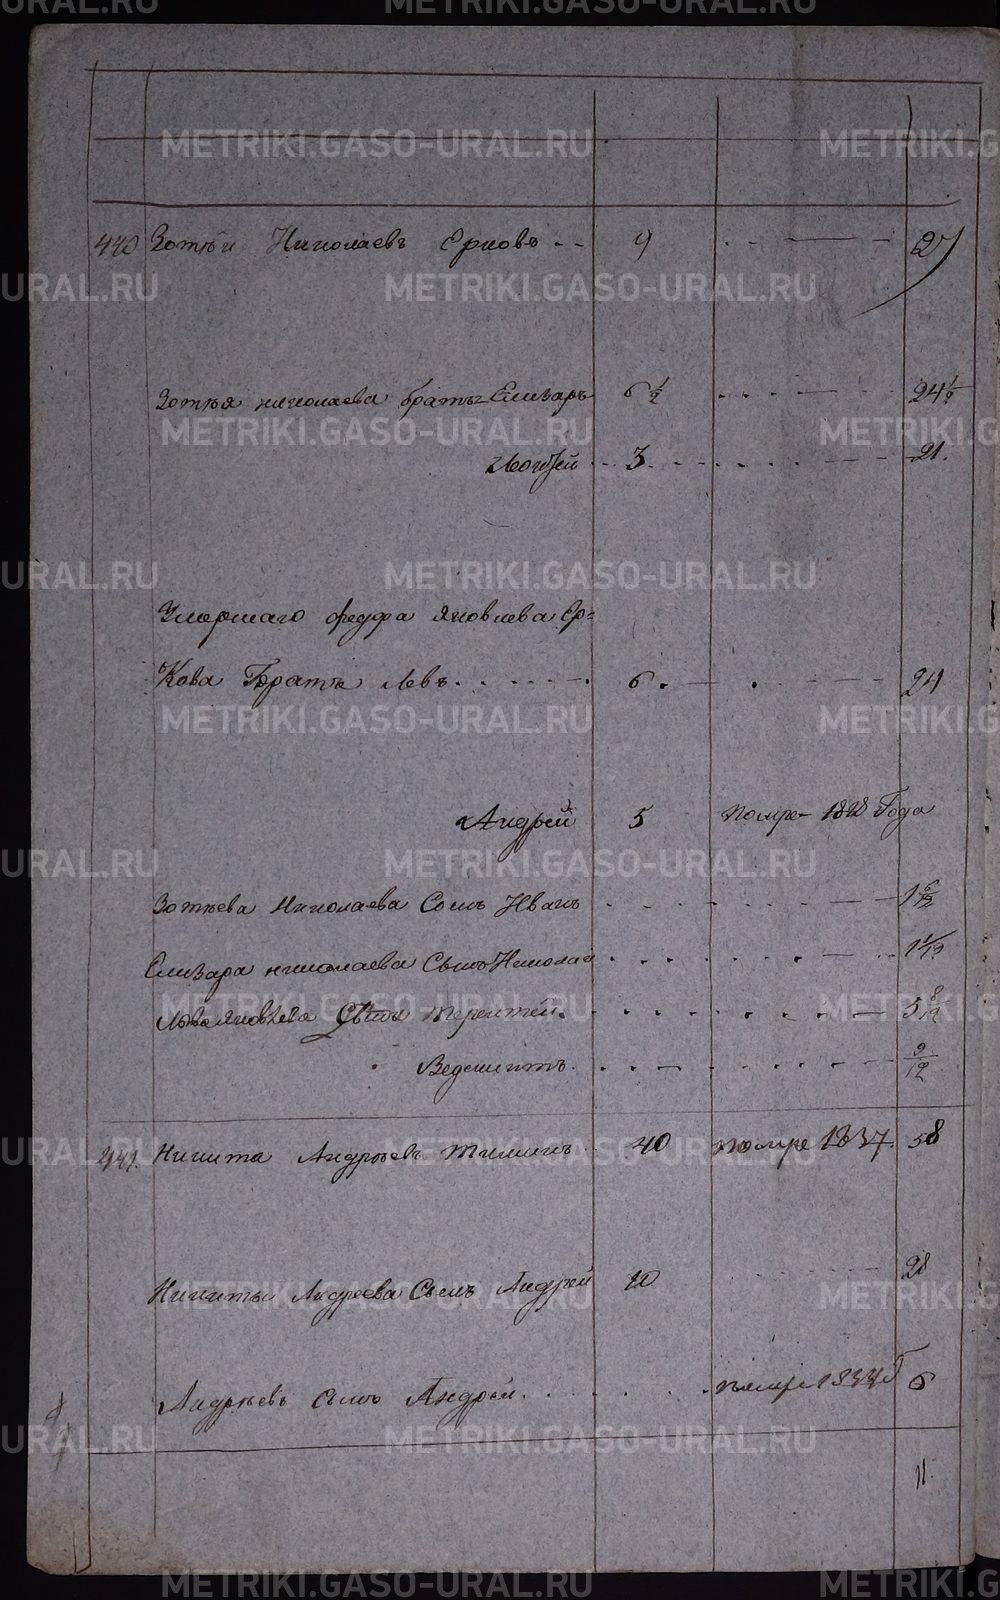 METRIKI.GASO-URAL.RU
440 Зотѣи Николаевъ Ерковъ -- 9 27
Зотѣя николаева братъ Елизаръ 6 1/2 24 1/2
Мочѣей 3 21.
Умершаго федфа Яковлева Ер=
Кова Братъ Левъ 6 24
Андрѣй 5 помре 1828 Года
Зотѣева Николаева Сынъ Иванъ 1 6/12
Елизара николаева Сынъ Николай 1 1/12
Льва яковлева Сынъ терентей. 5 8/12
Ведениктъ. 9/12
441. Никита Андрѣевъ тиминъ 40 помре 1837. 58
Никиты Андреева Сынъ Андрей 10 28
Андрѣевъ сынъ Андрей помре 1844 Г 6
11.